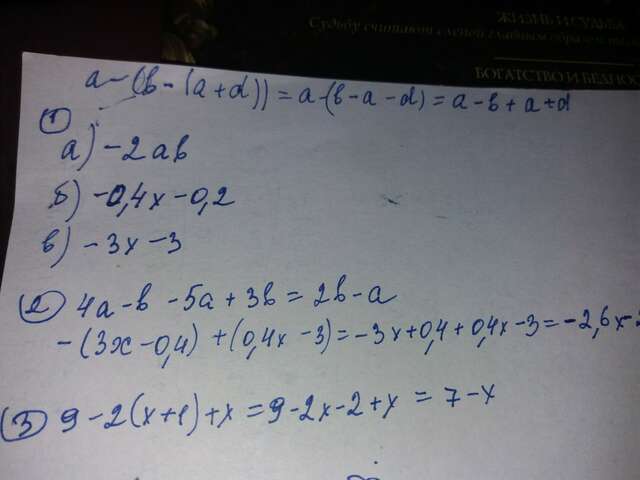 ЖИЗНЬ И СУДЬБА
Судьбу считают слепой главным образом те
БОГАТСТВО И БЕДНОС
a-(в-(a+d))=a-(в-a-d)=a-в+a+d
①
а) -2ав
б) -0,4x-0,2
в) -3x-3
② 4a-в-5a+3в=2в-a
-(3x-0,4)+(0,4x-3)=-3x+0,4+0,4x-3=-2,6x-2
③ 9-2(x+1)+x=9-2x-2+x=7-x